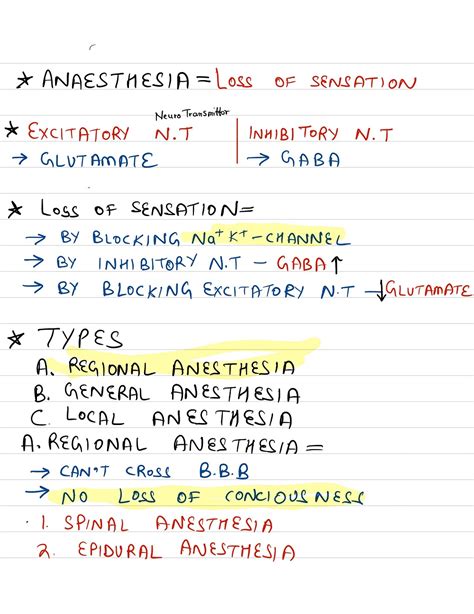 * ANAESTHESIA = LOSS OF SENSATION
Neuro Transmittor
* EXCITATORY N.T | INHIBITORY N.T
→ GLUTAMATE | → GABA
* LOSS OF SENSATION=
→ BY BLOCKING Na+ K+ - CHANNEL
→ BY INHIBITORY N.T - GABA↑
→ BY BLOCKING EXCITATORY N.T - ↓GLUTAMATE
* TYPES
A. REGIONAL ANESTHESIA
B. GENERAL ANESTHESIA
C. LOCAL ANESTHESIA
A. REGIONAL ANESTHESIA =
→ CAN'T CROSS B.B.B
→ NO LOSS OF CONCIOUSNESS
1. SPINAL ANESTHESIA
2. EPIDURAL ANESTHESIA